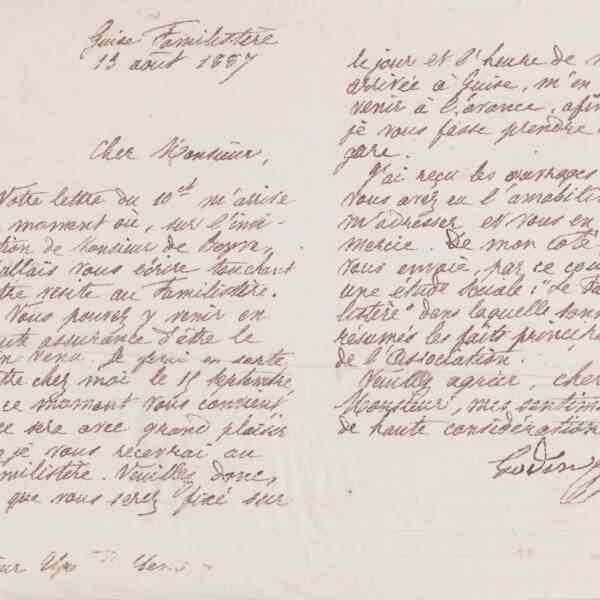 Guise Familistère
13 août 1887
Cher Monsieur,
Votre lettre du 10 ct m'arrive
moment où, sur l'invi-
tion de Monsieur de Boyve,
allais vous écrire touchant
tre visite au Familistère.
Vous pouvez y venir en
ute assurance d'être le
en venu. Je ferai en sorte
être chez moi le 15 septembre
ce moment vous convient
ce sera avec grand plaisir
je vous recevrai au
milistère. Veuillez donc,
que vous serez fixé sur
le jour et l'heure de
arrivée à Guise, m'en
venir à l'avance, afin
je vous fasse prendre
gare.
J'ai reçu les ouvrages
vous avez eu l'amabili
m'adresser et vous en
mercie. De mon côté
vous envoie, par ce cou
une étude sociale: "Le Fa
listère" dans laquelle son
résumés les faits princip
de l'Association.
Veuillez agréer, cher
Monsieur, mes sentim
de haute considération
Godin